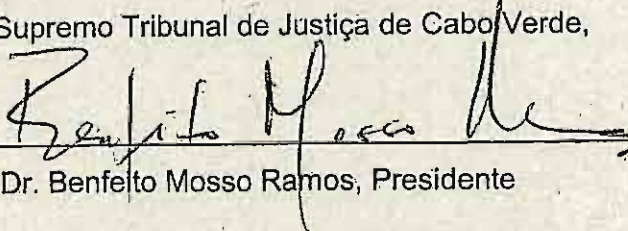 Supremo Tribunal de Justiça de Cabo Verde,
Benfeito Mosso
Dr. Benfeito Mosso Ramos, Presidente